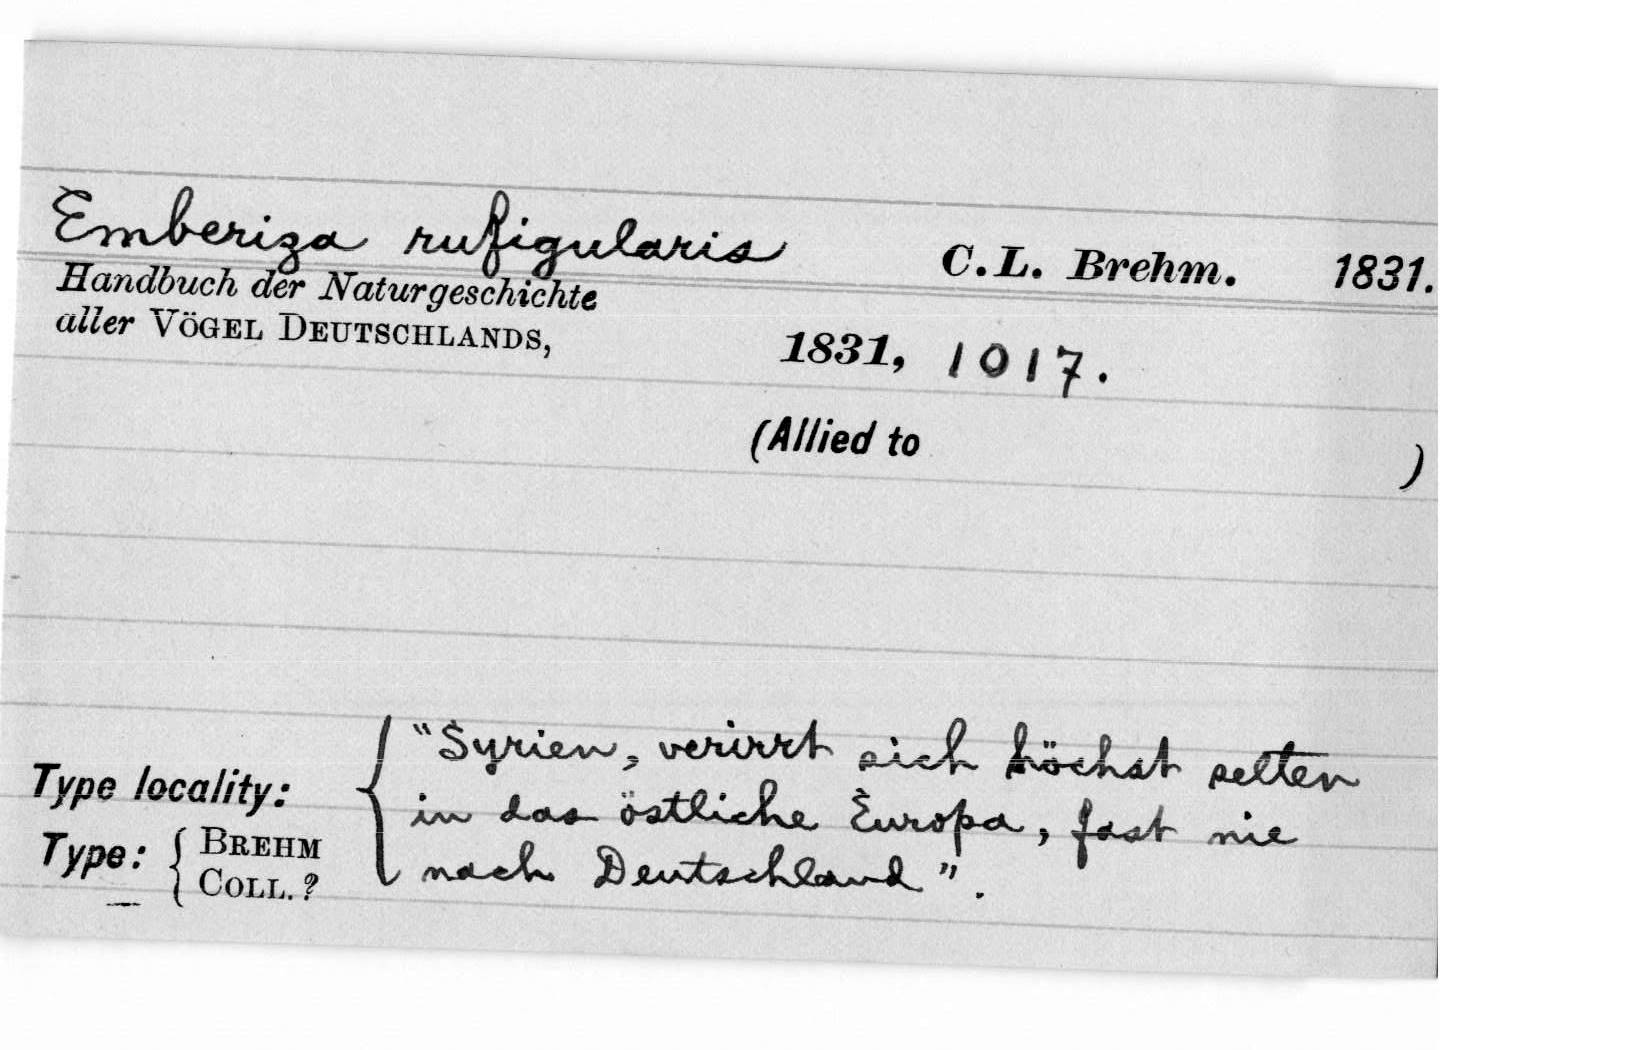 Emberiza rufigularis C.L. Brehm. 1831.
Handbuch der Naturgeschichte
aller VÖGEL DEUTSCHLANDS, 1831, 1017.
(Allied to )
Type locality: { "Syrien, verirrt sich höchst selten
in das östliche Europa, fast nie
nach Deutschland".
Type: { BREHM
COLL. ?